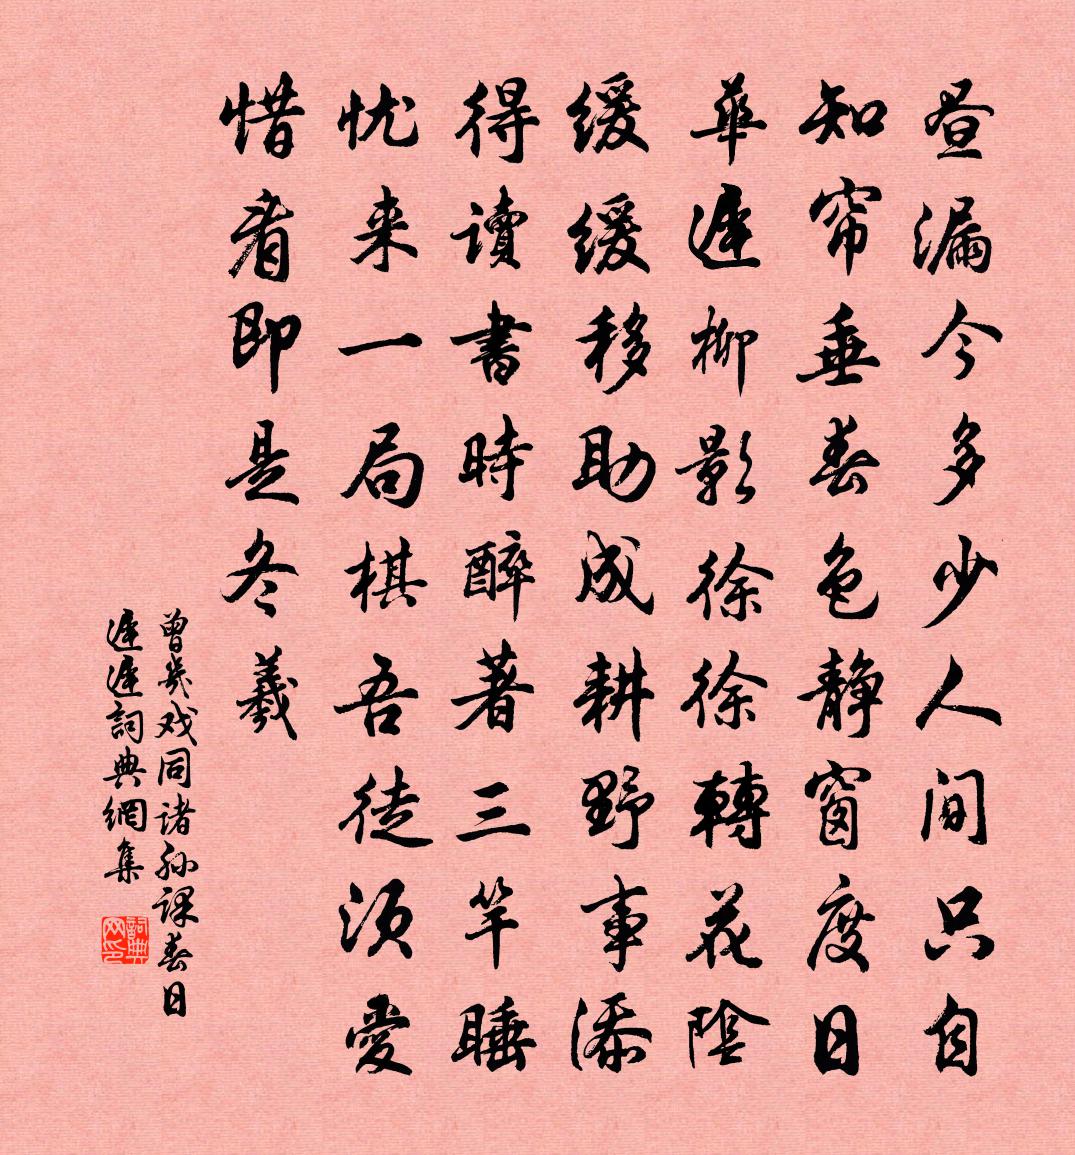 昼漏今多少人间只自
知帘垂春色静窗度日
華遲柳影徐徐轉花陰
缓缓移助成耕野事添
得讀書時醉著三竿睡
忧来一局棋吾徒须愛
惜看即是冬羲
曾幾戏同诸孙课春日
遲遲詞典網集
詞典网印